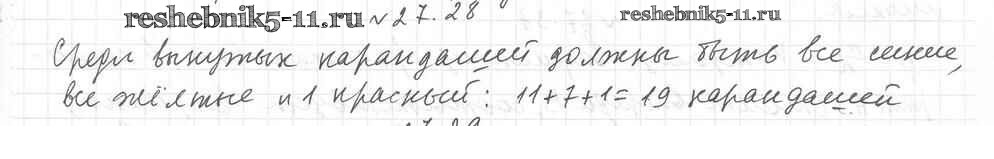 reshebnik5-11.ru № 27.28 reshebnik5-11.ru
Среди вынутых карандашей должны быть все синие,
все жёлтые и 1 красный: 11+7+1=19 карандашей